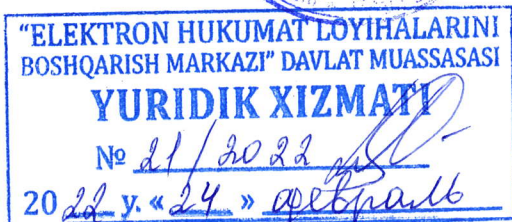 "ELEKTRON HUKUMAT LOYIHALARINI
BOSHQARISH MARKAZI" DAVLAT MUASSASASI
YURIDIK XIZMATI
№ 21/2022
2022 y. «24» февраль